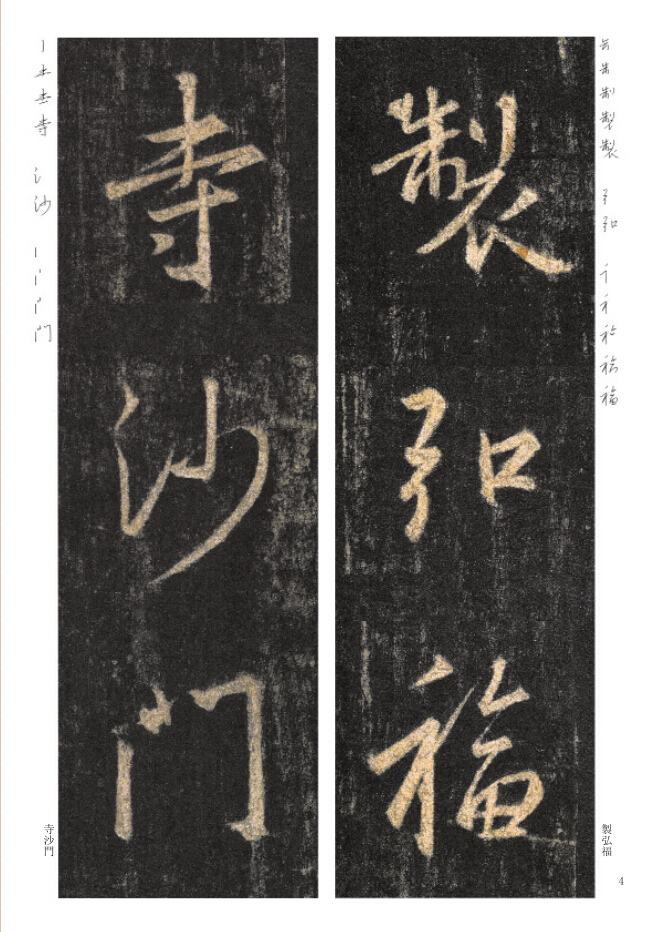 製弘福
寺沙門
製弘福
寺沙門
4